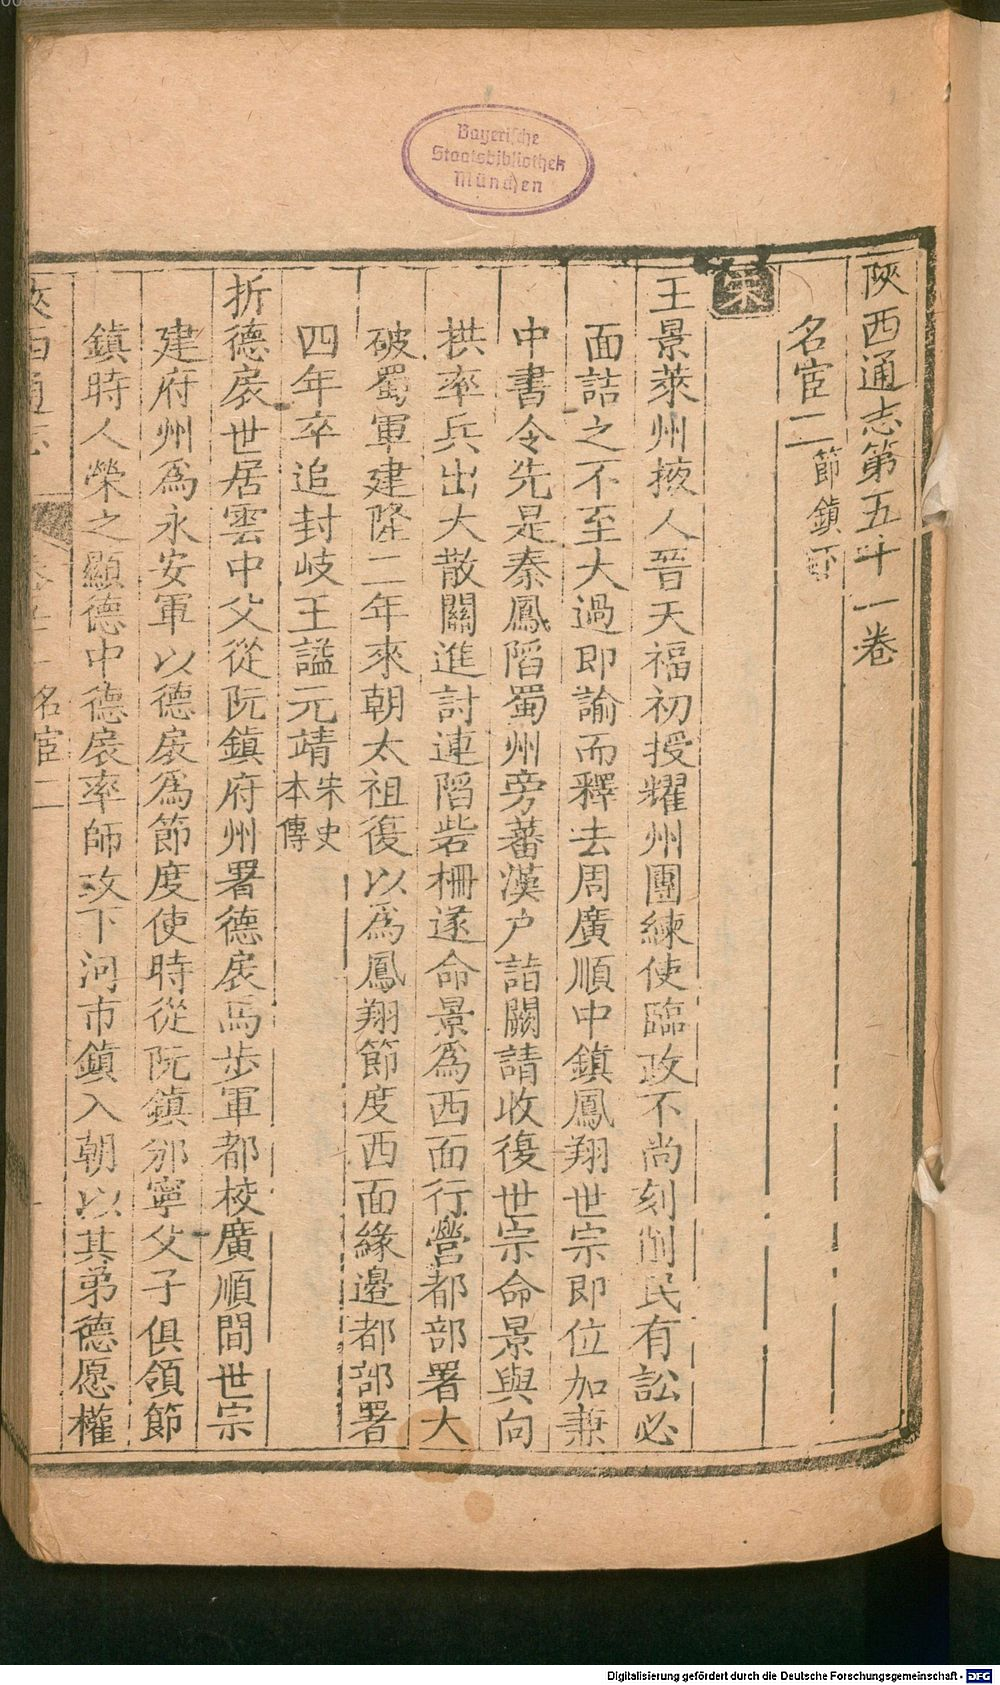 Bayerische
Staatsbibliothek
München
陝西通志第五十一卷
名宦二 節鎮
宋
王景萊州掖人晉天福初授耀州團練使臨政不尚刻削民有訟必
面詰之不至大過即諭而釋去周廣順中鎮鳳翔世宗即位加兼
中書令先是秦鳳陷蜀州旁蕃漢户詣闕請收復世宗命景與向
拱率兵出大散關進討連陷砦柵遂命景為西面行營都部署大
破蜀軍建隆二年來朝太祖復以為鳳翔節度西面緣邊都部署
四年卒追封岐王謚元靖 宋史本傳
折德扆世居雲中父從阮鎮府州署德扆馬步軍都校廣順間世宗
建府州為永安軍以德扆為節度使時從阮鎮邠寧父子俱領節
鎮時人榮之顯德中德扆率師攻下河市鎮入朝以其弟德愿權
陝西通志 名宦二
Digitalisierung gefördert durch die Deutsche Forschungsgemeinschaft - DFG